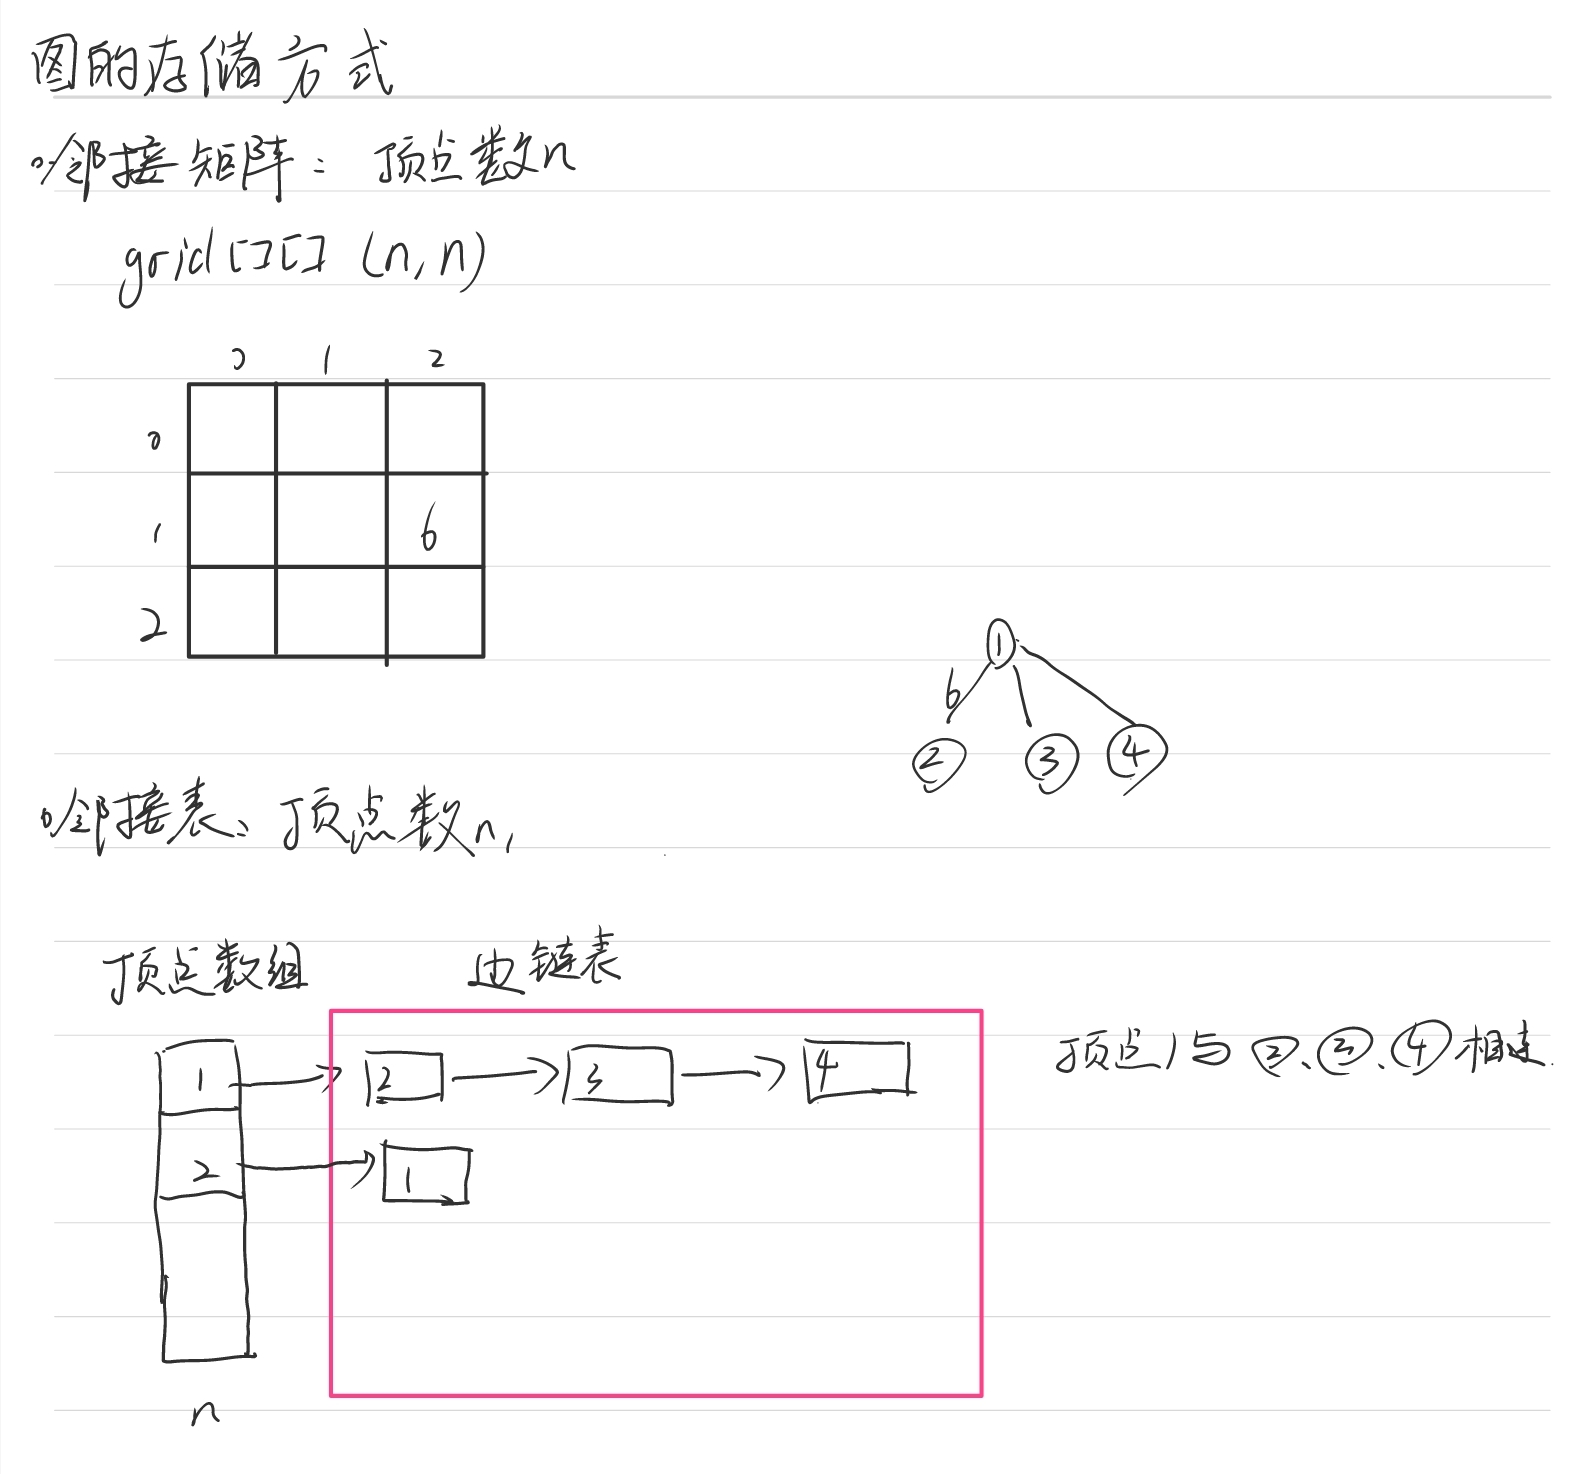 图的存储方式
邻接矩阵: 顶点数n
grid[][] (n,n)
0 1 2
0
1 6
2
1
6
2 3 4
邻接表: 顶点数n,
顶点数组 边链表
1 2 3 4 顶点1与②、③、④相连
2 1
n